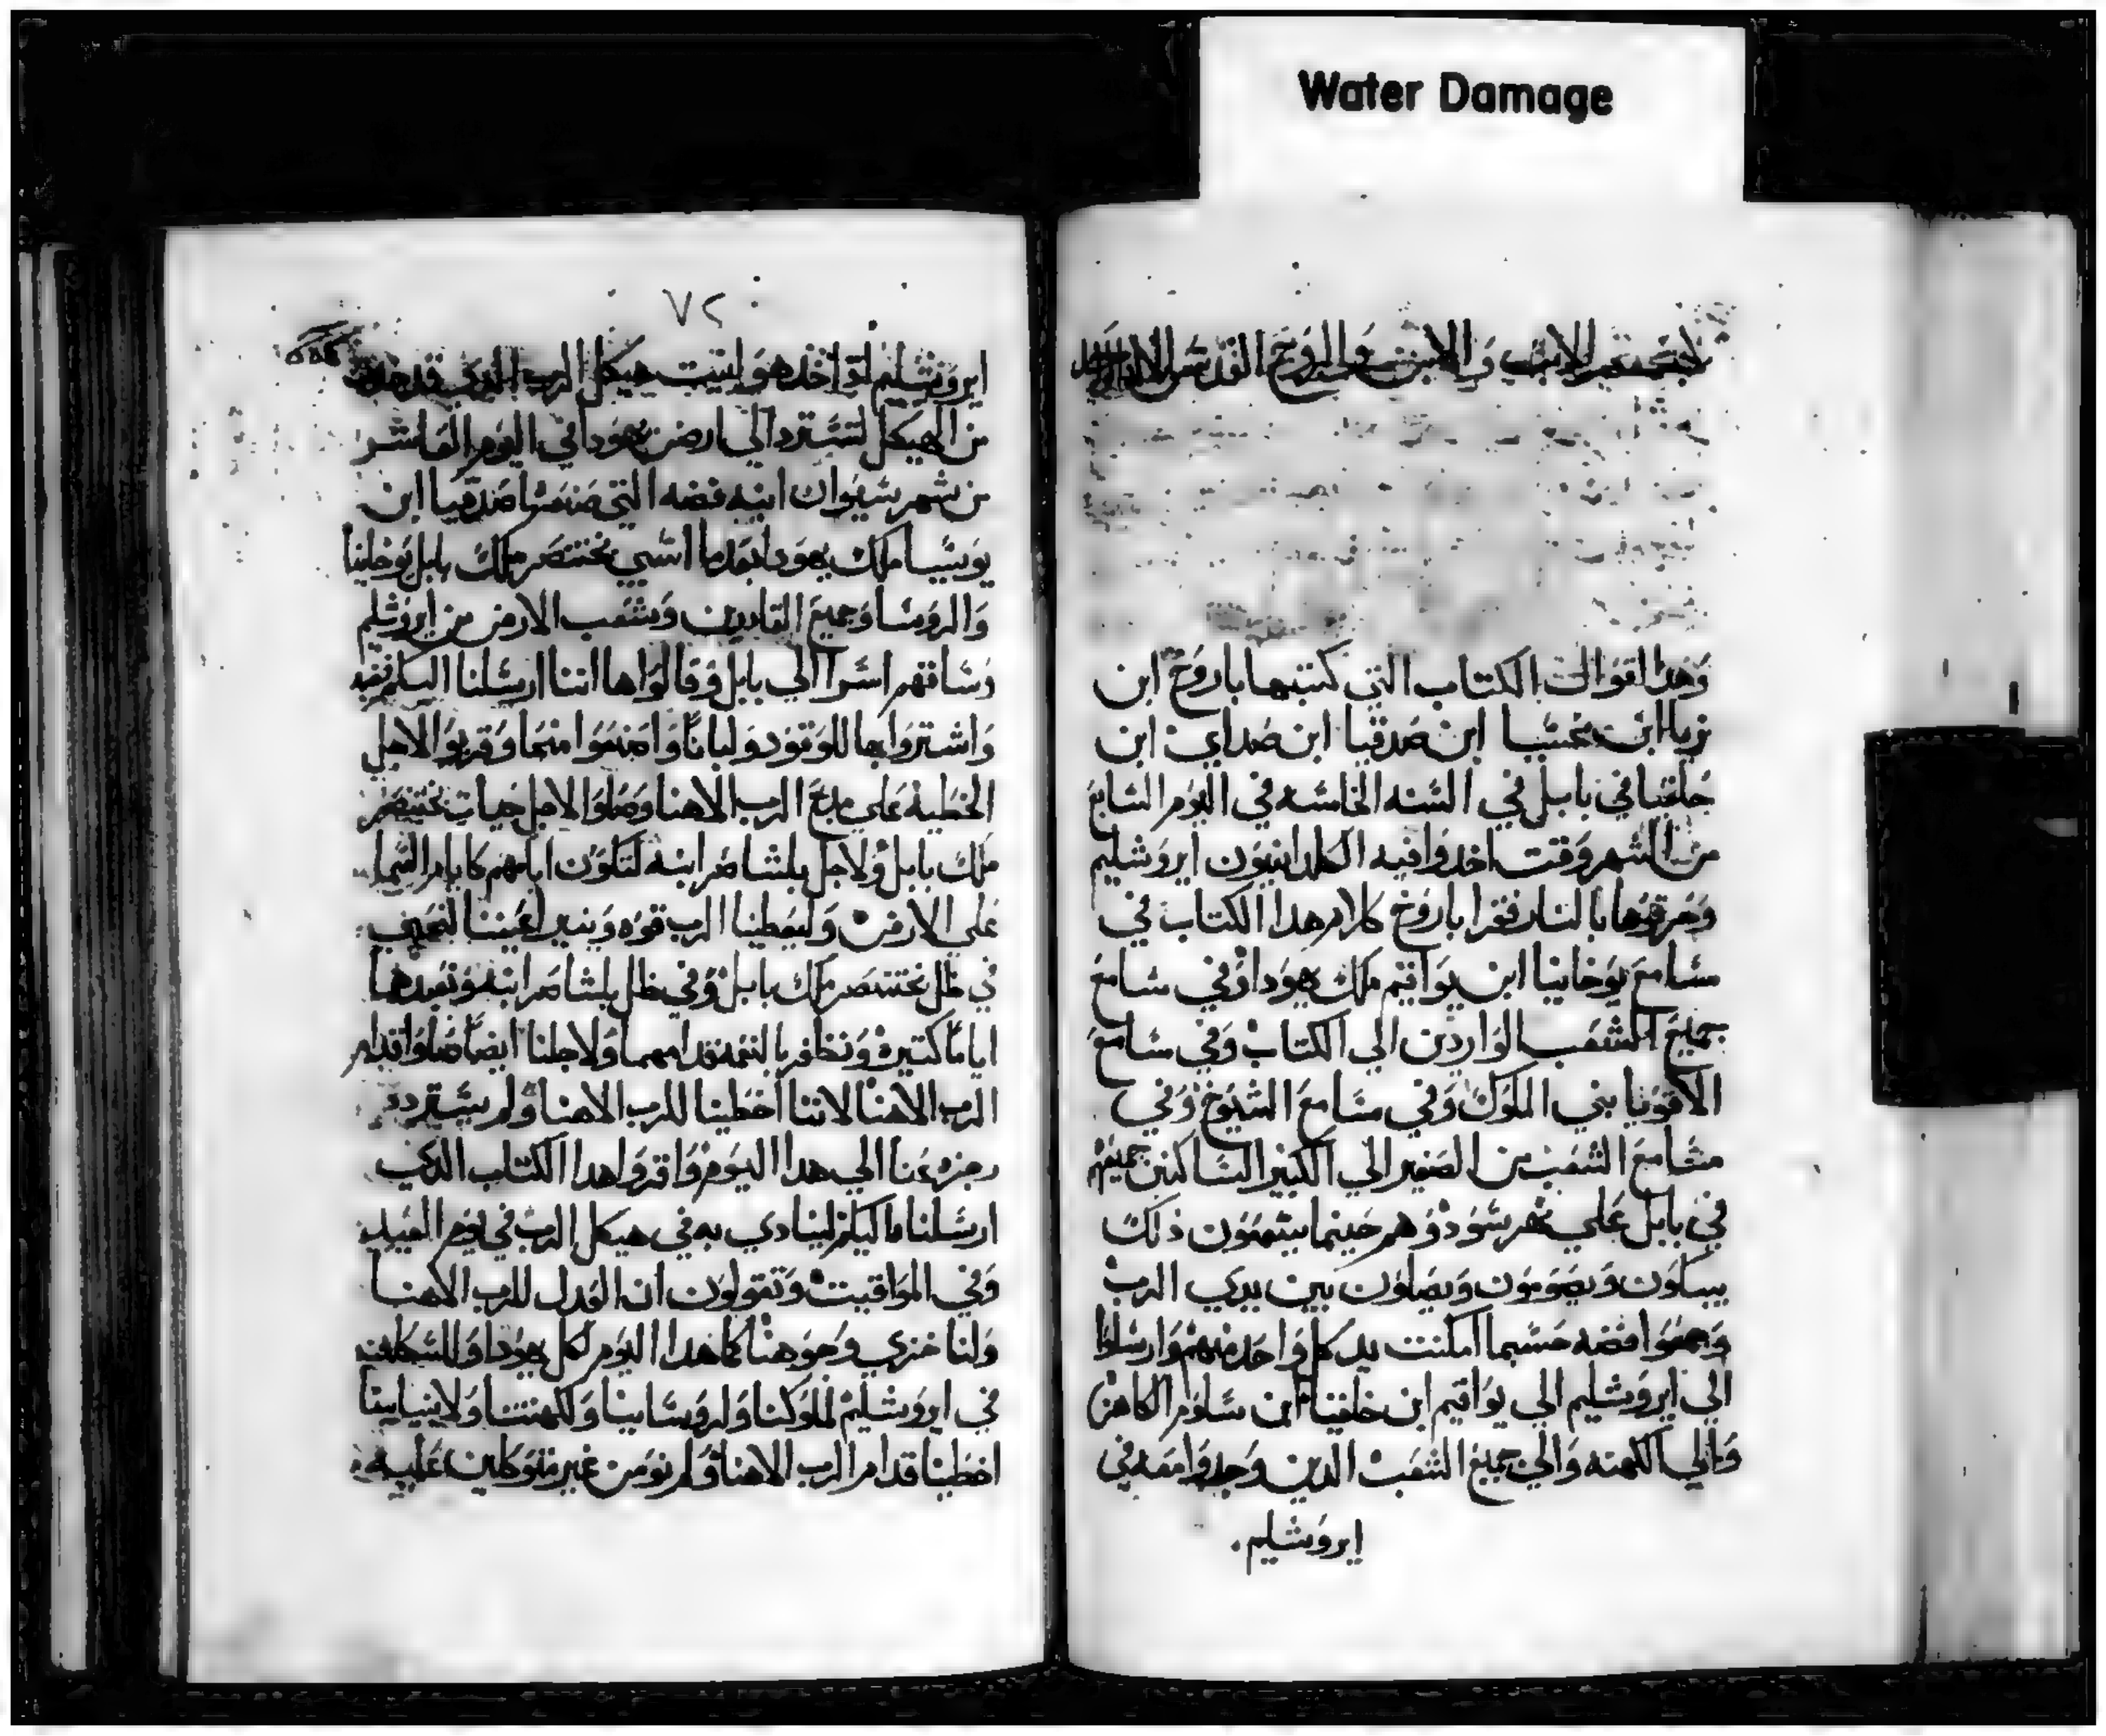 Water Damage
الاب والابن والروح القدس الاله الواحد
وهدا لقوالت الكتاب التي كتبها باروخ ابن
نريا ابن محسيا ابن صدقيا ابن صداي ابن
حلقيا في بابل في السنه الخامسه في اليوم السابع
من الشهر وقت اخدوا فيه الكلدانيون ايروشليم
وحرقوها بالنار فقرا باروخ كلام هدا الكتاب في
مسامع يوخانيا ابن يواقيم ملك يهودا وفي مسامع
جميع الشعب الواردين الي الكتاب وفي مسامع
الاقويا بني الملوك وفي مسامع الشيوخ وفي
مسامع الشعب من الصغير الي الكبير الساكنين جميعهم
في بابل علي نهر سود وهم حينما يسمعون ذلك
يبكون ويصومون ويصلون بين يدي الرب
وجمعوا فضه حسبما امكنت يد كل واحد منهم وارسلوا
الي ايروشليم الي يواقيم ابن حلقيا ابن سلوم الكاهن
والي الكهنه والي جميع الشعب الدين وجدوا معه في
ايروشليم.
٧٢
ايروشليم لتواخد هو لبيت هيكل الرب
من الهيكل لتسترد الي ارض يهودا في اليوم العاشر
من شهر سيوان انيه فضه التي صنعها صدقيا ابن
يوسيا ملك يهودا بعدما اسبي بختنصر ملك بابل يوخانيا
والروسا وجميع القادرين وشعب الارض من ايروشليم
وساقهم اسرا الي بابل وقالوا ها اننا ارسلنا اليكم فضه
واشتروا بها للوقود ولبانًا واصنعوا منحا وقربوا لاجل
الخطيه علي مدبح الرب الاهنا وصلوا لاجل حيات بختنصر
ملك بابل ولاجل بلشاصر ابنه لتكون ايامهم كايام السما
علي الارض وليعطينا الرب قوه وينير اعيننا لنعيش
في ظل بختنصر ملك بابل وفي ظل بلشاصر ابنه ونعبدهما
ايامًا كتيره ونظفر بالنعمه قدامهما ولاجلنا ايضًا صلوا قدام
الرب الاهنا لاننا اخطينا للرب الاهنا ولم يسترد
رجزه عنا الي هدا اليوم واقروا هدا الكتاب الدي
ارسلناه اليكم لينادي به في هيكل الرب في يوم العيد
وفي المواقيت وتقولون ان العدل للرب الاهنا
ولنا خزي وجوهنا كما هدا اليوم لكل يهودا وللسكان
في ايروشليم لملوكنا ولروساينا ولكهنتنا ولانبياينا
اخطينا قدام الرب الاهنا ولم نومن غير متوكلين عليه